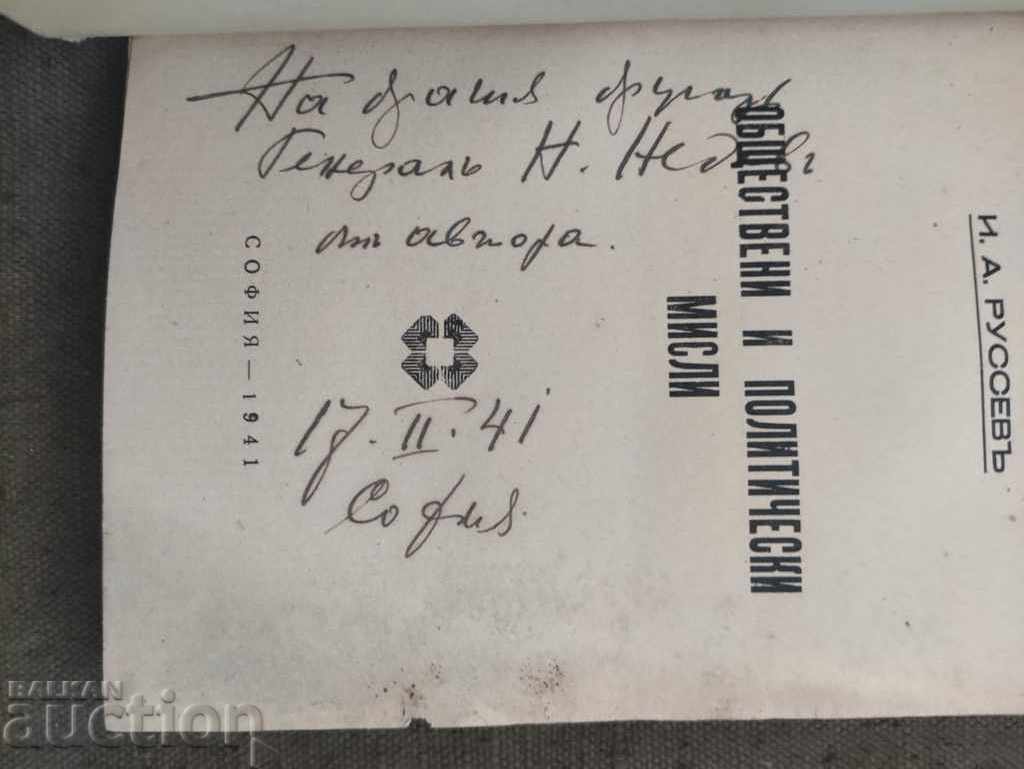 На драгия другарь
Генералъ Н. Недевъ
отъ автора.
17. II. 41
София.
И. А. РУССЕВЪ
ОБЩЕСТВЕНИ И ПОЛИТИЧЕСКИ
МИСЛИ
СОФИЯ — 1941
BALKAN
auction